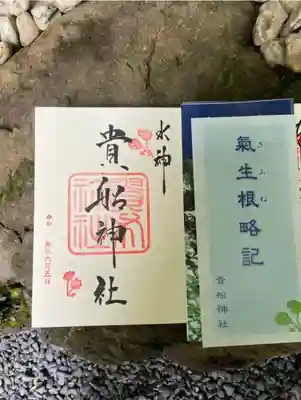 水神
貴船神社
令和
六月五日
きふね
氣生根略記
貴船神社